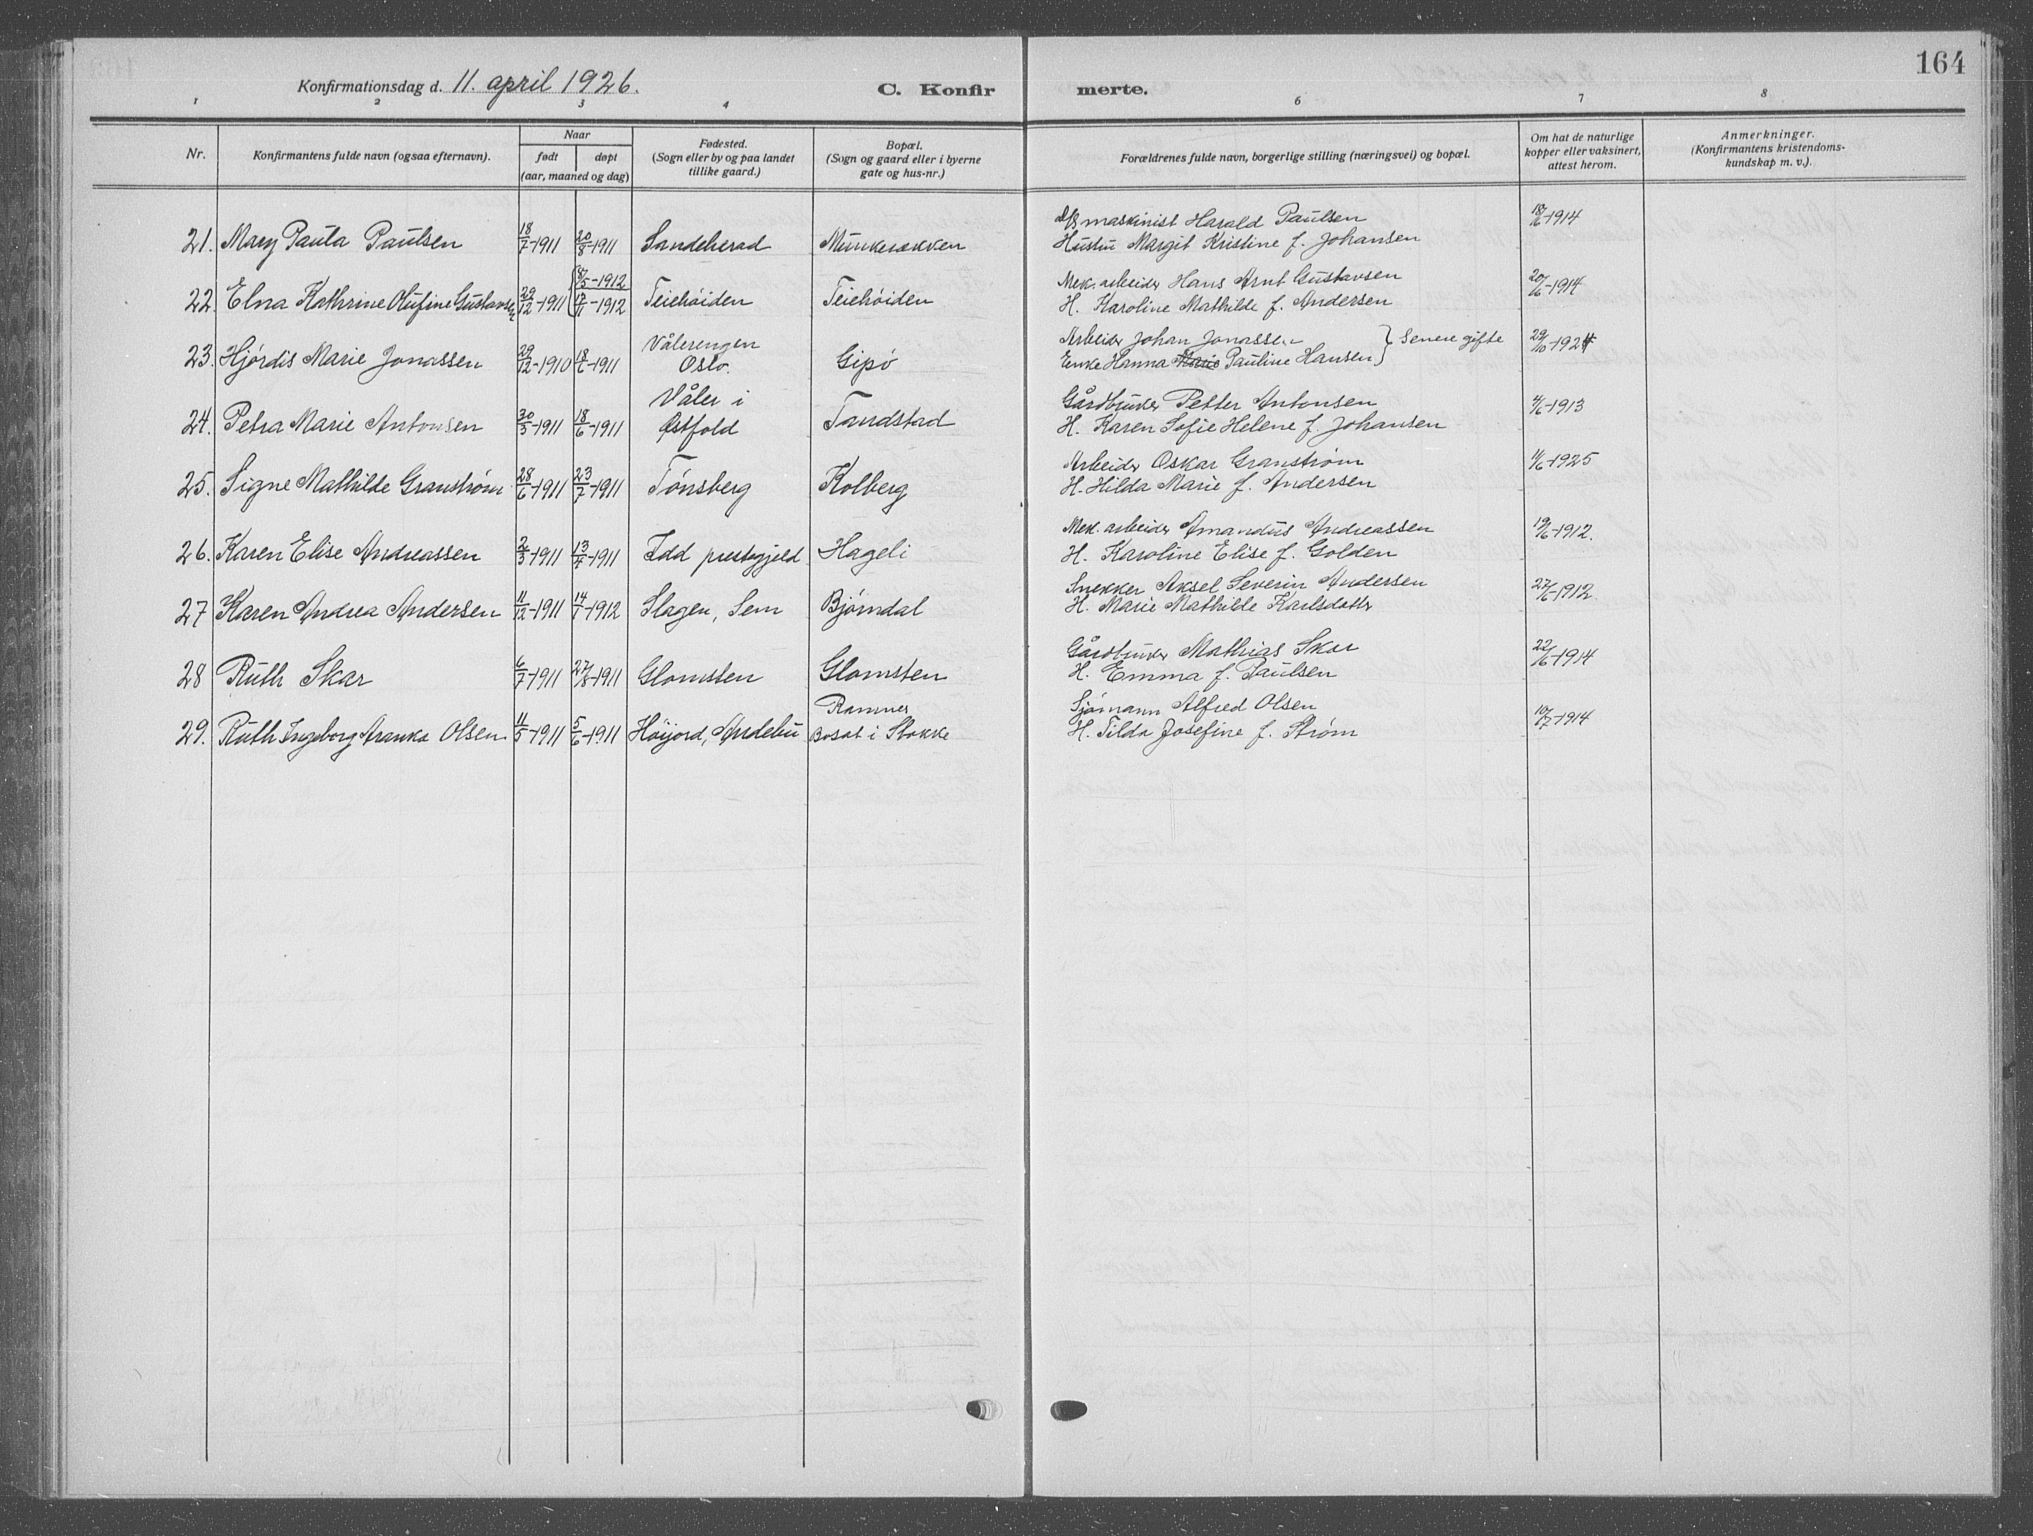 164
Konfirmationsdag d. 11. april 1926. C. Konfir merte.
1 2 3 4 6 7 8
Nr. Konfirmantens fulde navn (ogsaa efternavn). Naar født døpt (aar, maaned og dag) Fødested. (Sogn eller by og paa landet tillike gaard.) Bopæl. (Sogn og gaard eller i byerne gate og hus-nr.) Forældrenes fulde navn, borgerlige stilling (næringsvei) og bopæl. Om hat de naturlige kopper eller vaksinert, attest herom. Anmerkninger. (Konfirmantens kristendoms-kundskap m. v.).
21. Mary Paula Paulsen 18/7-1911 20/8-1911 Sandeherad Munkerækken D/S maskinist Harald Paulsen 18/6-1914
Hustru Margit Kristine f. Johansen
22. Elna Kathrine Olufine Gustavsen 29/12-1911 17/11-1912 Teiehøiden Teiehøiden Mek. arbeider Hans Arnt Gustavsen 20/6-1914
H. Karoline Mathilde f. Andersen
23. Hjørdis Marie Jonassen 29/12-1910 18/6-1911 Vålerengen Oslo. Gipø Arbeider Johan Jonassen } Senere gifte 29/10-1924
Enke Hanna Marie Pauline Hansen
24. Petra Marie Antonsen 30/3-1911 18/6-1911 Våler i Østfold Tandstad Gårdbruker Petter Antonsen 4/6-1913
H. Karen Sofie Helene f. Johansen
25. Signe Mathilde Granstrøm 28/6-1911 23/7-1911 Tønsberg Kolberg Arbeider Oskar Granstrøm 11/6-1925
H. Hilda Marie f. Andersen
26. Karen Elise Andreassen 2/3-1911 13/4-1911 Idd prestegjeld Hageli Mek. arbeider Amandus Andreassen 19/6-1912.
H. Karoline Elise f. Golden
27 Karen Andrea Andersen 11/12-1911 14/7-1912 Slagen, Sem Bjørndal Snekker Aksel Severin Andersen 27/6-1912.
H. Marie Mathilde Karlsdatter
28 Ruth Skar 6/7-1911 27/8-1911 Glomsten Glomsten Gårdbruker Mathias Skar 22/6-1914
H. Emma f. Paulsen
29. Ruth Ingeborg Aranka Olsen 11/5-1911 5/6-1911 Høijord, Andebu Ramnes Bosat i Stokke Sjømann Alfred Olsen 10/7-1914
H. Tilda Josefine f. Strøm